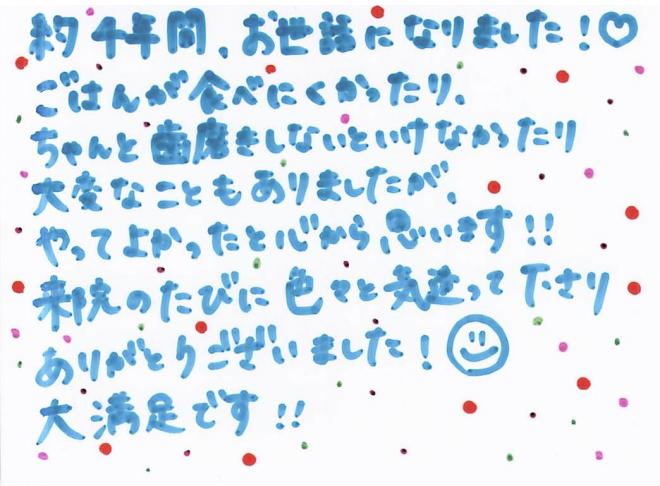 約4年間、お世話になりました！♡
ごはんが食べにくかったり、
ちゃんと歯磨きしないといけなかったり
大変なこともありましたが、
やってよかったと心から思います!!
来院のたびに色々と気遣って下さり
ありがとうございました！
大満足です!!